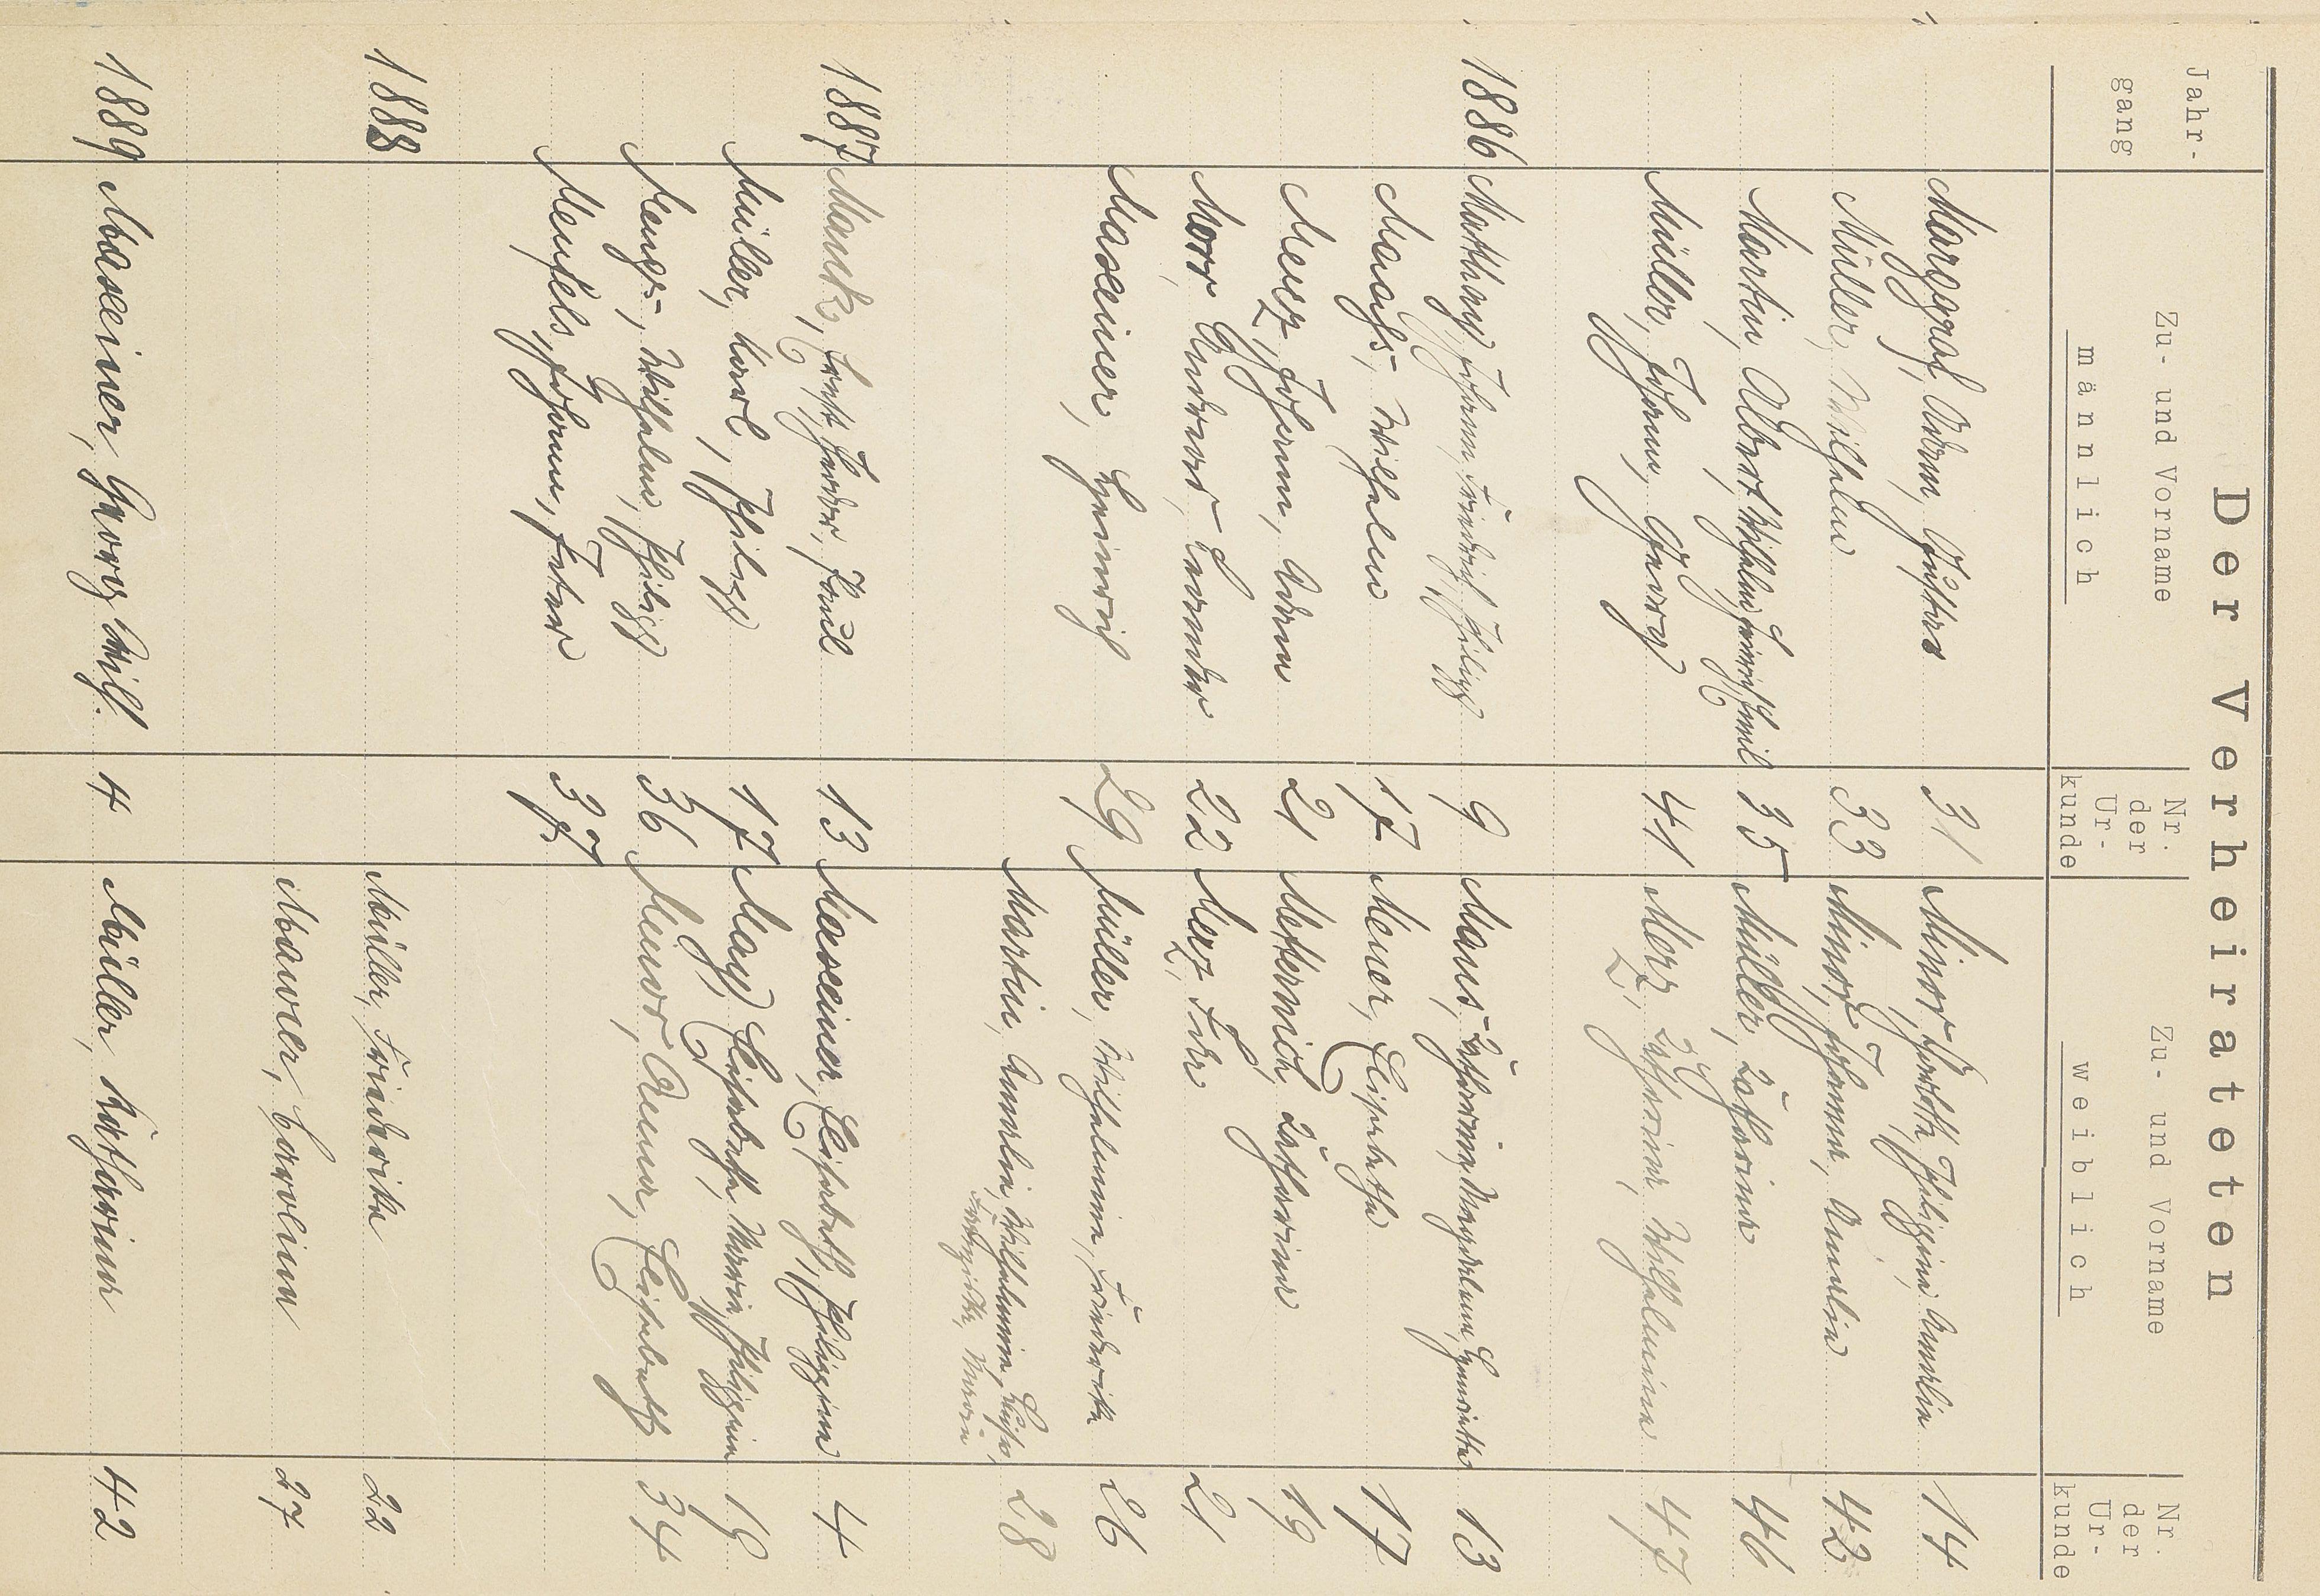 Der Verheirateten
Jahr-
gang
Zu- und Vorname
männlich
Nr.
der
Ur-
kunde
Zu- und Vorname
weiblich
Nr.
der
Ur-
kunde
Marggraf, Adam, Gustav 31 Minor, Dorothea Philippine Amalia 14
Müller, Wilhelm 33 Minor, Johanna, Amalia 42
Martin, Albert, Wilhelm Heinrich Emil 35 Müller, Katharina 46
Müller, Johann, Georg 41 Merz, Katharina, Wilhelmina 47
1886 Matthay, Johann, Friedrich, Philipp 9 Maus, Katharina Magdalena Henriette 13
Maahs, Wilhelm 17 Meuer, Elisabetha 17
Meuz, Johann, Adam 21 Metternich, Katharina 19
Morr, Andreas, Leander 22 Merz, Eva 21
Maxeiner, Heinrich 29 Müller, Wilhelmina, Friederike 26
Martin, Amalia, Wilhelmina, Luise, 28
Maria
1887 Manck, Ernst, Paul 13 Maxeiner, Elisabeth, Philippina 4
Müller, Karl, Philipp 17 May, Elisabetha, Maria, Philippina 19
Menges, Wilhelm, Philipp 36 Meuer, Anna, Elisabeth 34
Menfels, Johann, Peter 37
1888 Müller, Friederike 22
Maurer, Caroline 27
1889 Maxeiner, Georg Wilh. 4 Müller, Katharina 42